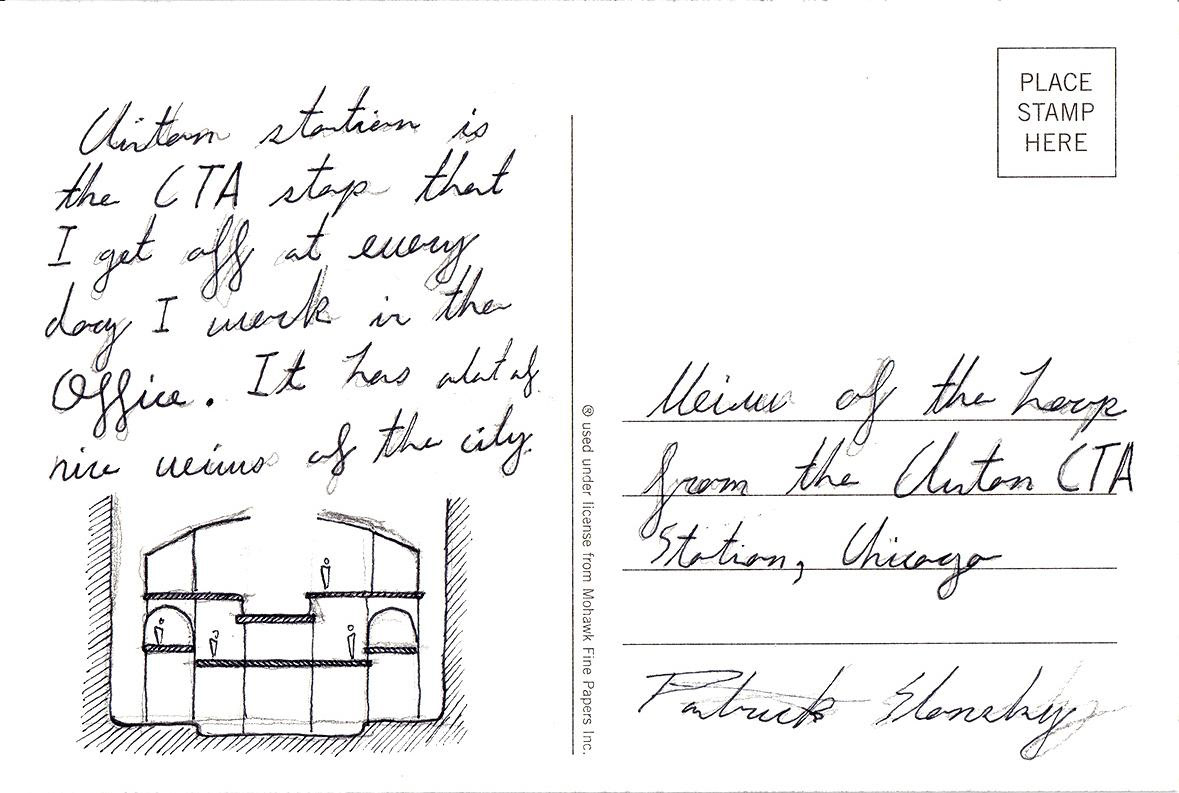 Clinton station is
the CTA stop that
I get off at every
day I work in the
Office. It has alot of
nice veiws of the city.
PLACE
STAMP
HERE
® used under license from Mohawk Fine Papers Inc.
Veiw of the Loop
from the Clinton CTA
Station, Chicago
Patrick